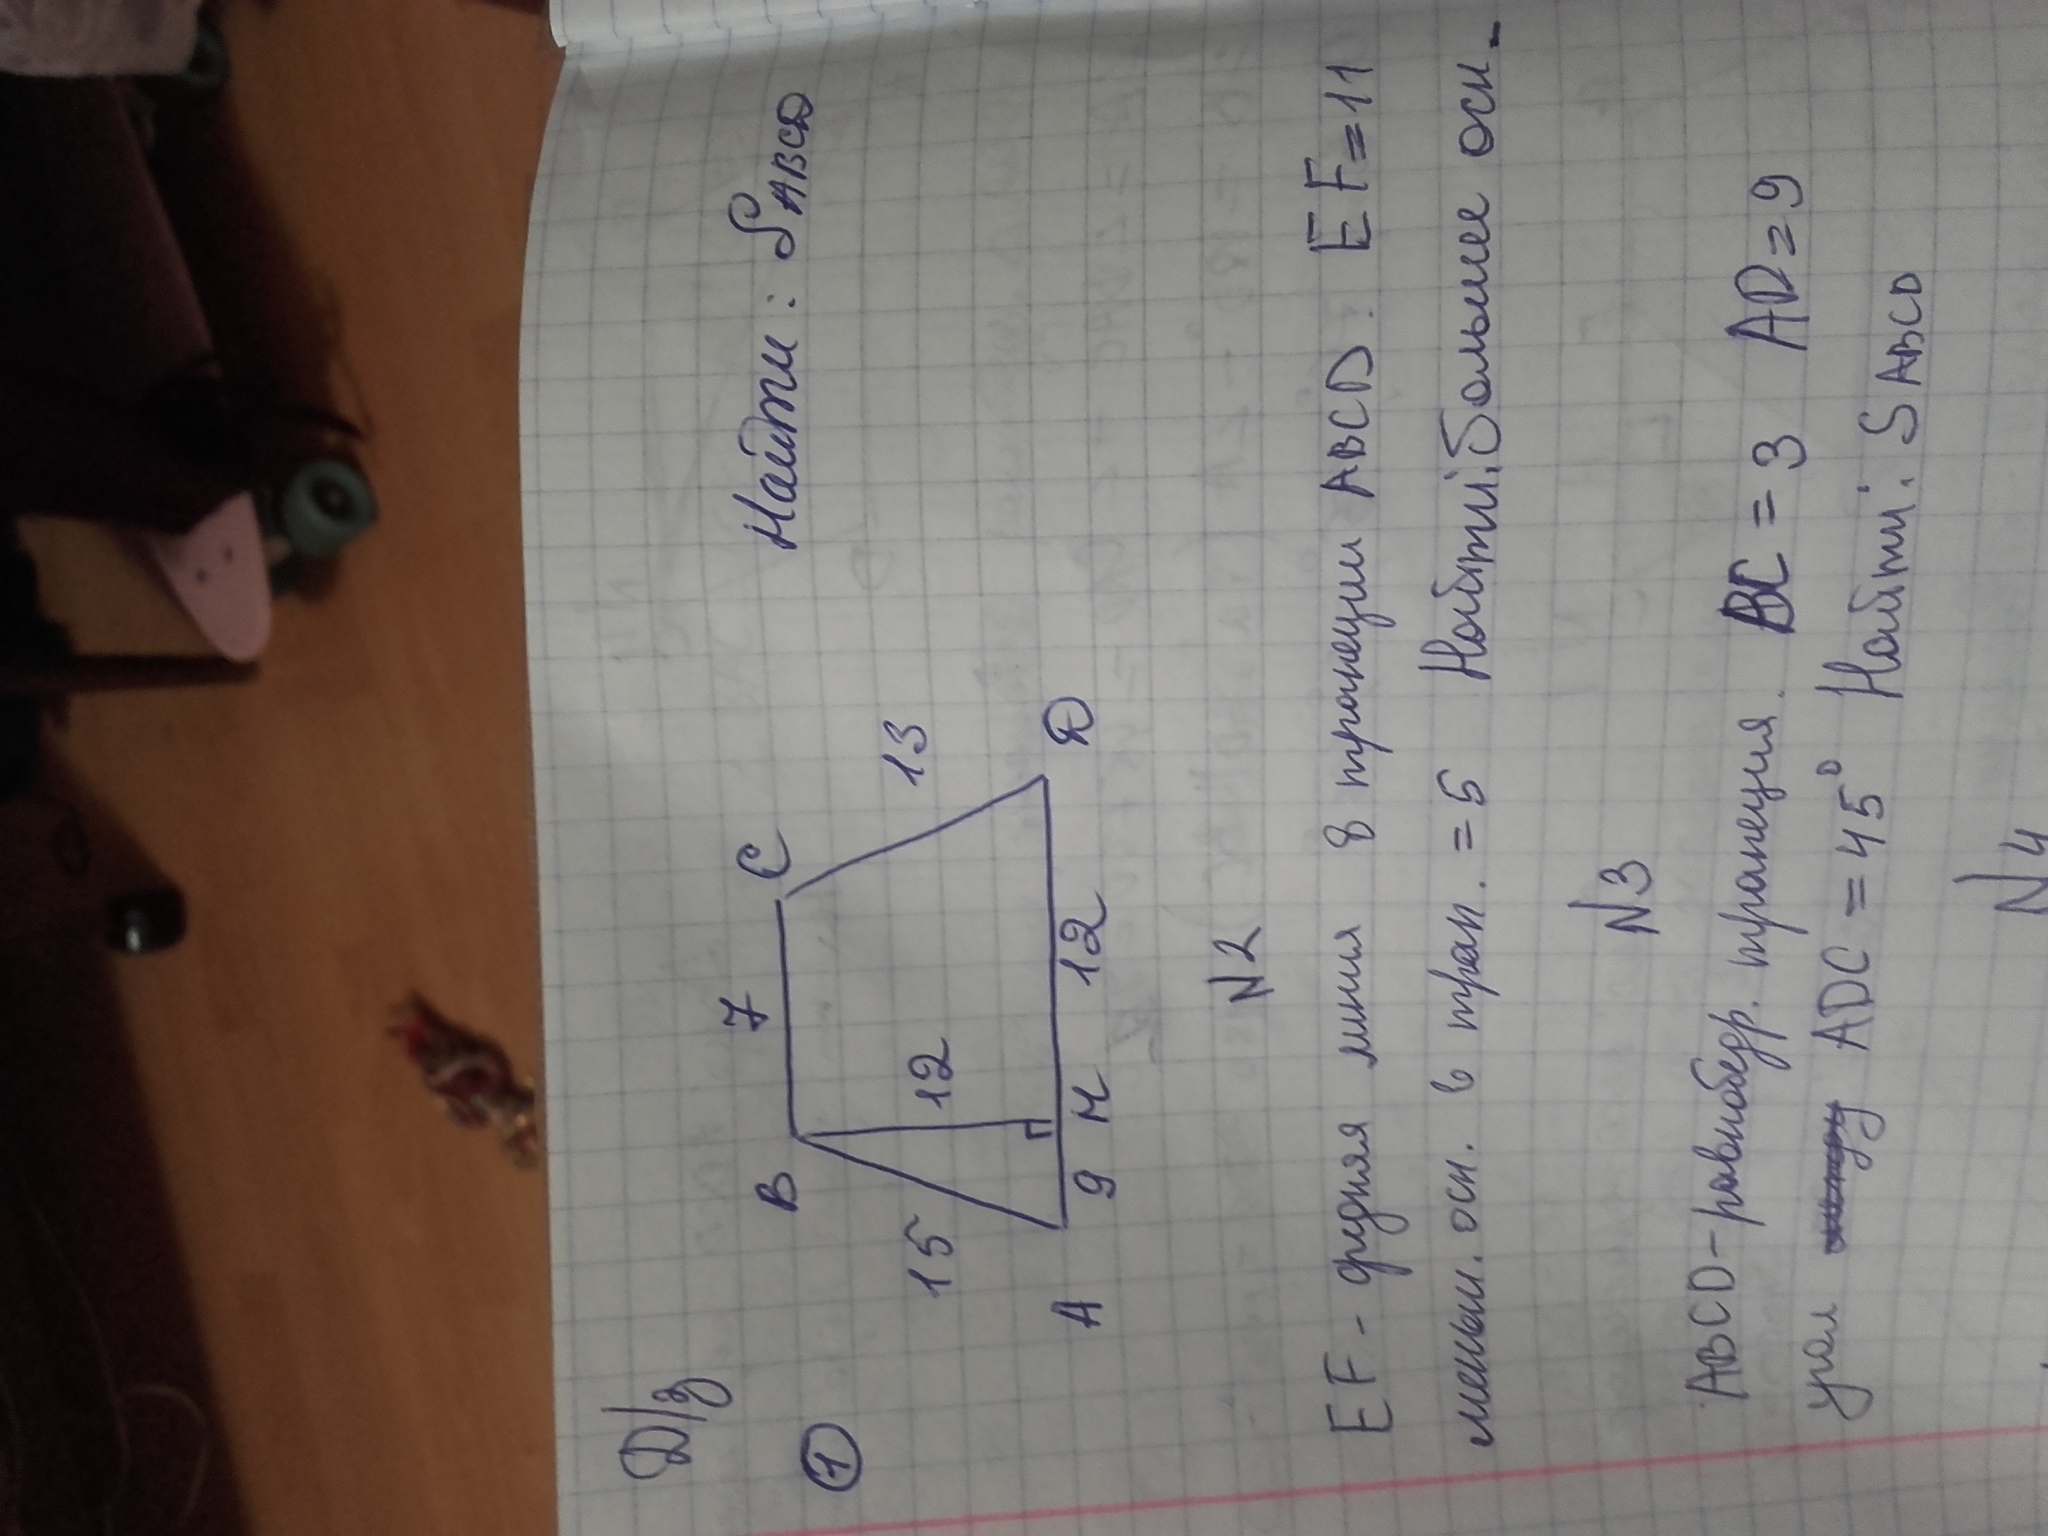 Д/з
① Найти: SABCD
B 7 C
15 12 13
A 9 М 12 D
N2
EF - средняя линия в трапеции ABCD. EF=11
меньш. осн. в трап. = 5 Найти: большее осн.
N3
ABCD - равнобедр. трапеция. BC = 3 AD=9
угол ADC = 45° Найти: SABCD
N4